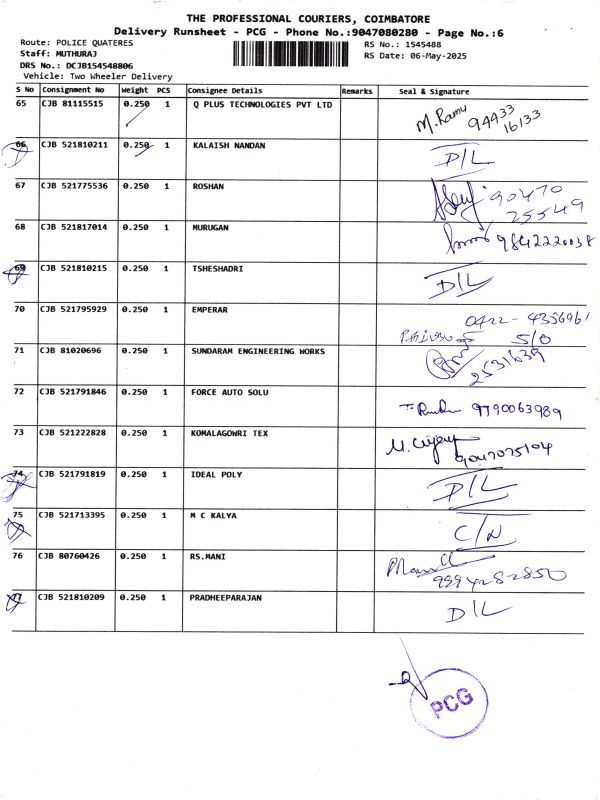 THE PROFESSIONAL COURIERS, COIMBATORE
Delivery Runsheet - PCG - Phone No.:9047080280 - Page No.:6
Route: POLICE QUATERES
RS No.: 1545488
Staff: MUTHURAJ
RS Date: 06-May-2025
DRS No.: DCJB154548806
Vehicle: Two Wheeler Delivery
S No Consignment No Weight PCS Consignee Details Remarks Seal & Signature
65 CJB 81115515 0.250 1 Q PLUS TECHNOLOGIES PVT LTD M. Ramu 94433
16133
66 CJB 521810211 0.250 1 KALAISH NANDAN D/L
67 CJB 521775536 0.250 1 ROSHAN 90470
25549
68 CJB 521817014 0.250 1 MURUGAN 9842220038
69 CJB 521810215 0.250 1 TSHESHADRI D/L
70 CJB 521795929 0.250 1 EMPERAR 0422 - 4336961
S/O
71 CJB 81020696 0.250 1 SUNDARAM ENGINEERING WORKS 2531639
72 CJB 521791846 0.250 1 FORCE AUTO SOLU 9790063989
73 CJB 521222828 0.250 1 KOMALAGOWRI TEX 9047075104
74 CJB 521791819 0.250 1 IDEAL POLY D/L
75 CJB 521713395 0.250 1 M C KALYA C/N
76 CJB 80760426 0.250 1 RS.MANI 9994282850
77 CJB 521810209 0.250 1 PRADHEEPARAJAN D/L
PCG